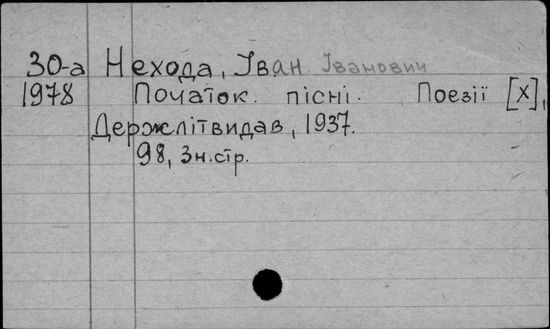 30-а Нехода, Іван Іванович
1978 Початок пісні. Поезії [Х],
Держлітвидав, 1937.
98, 3 н.стр.